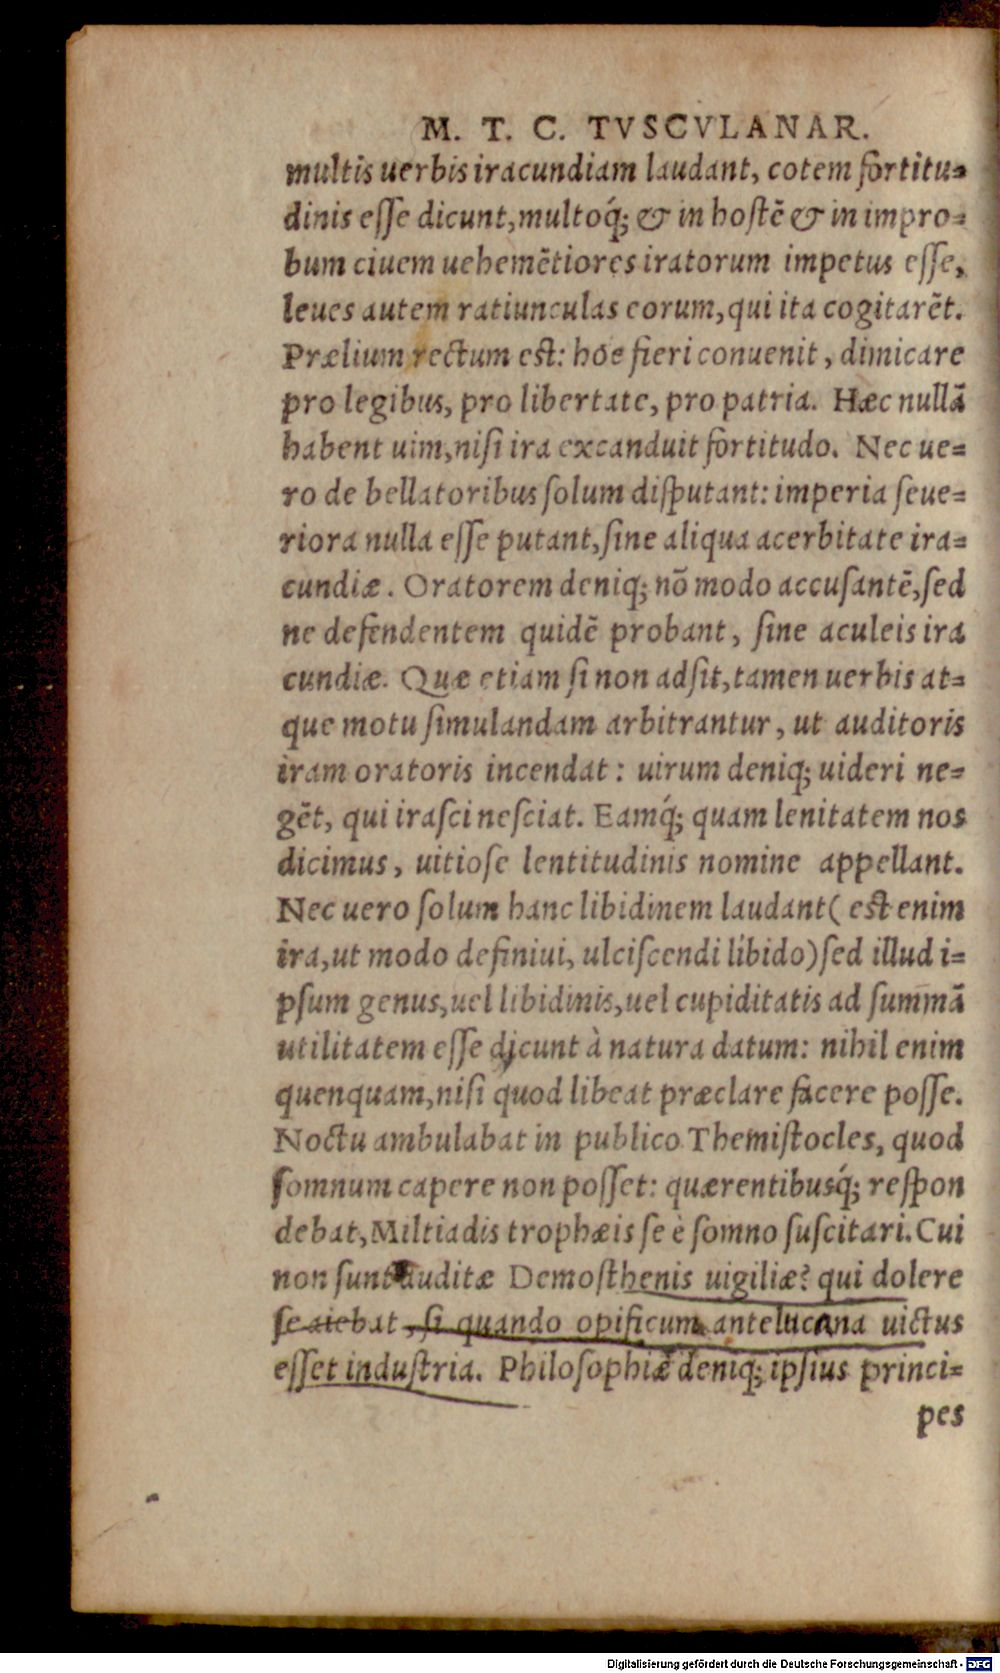 M. T. C. TVSCVLANAR.
multis uerbis iracundiam laudant, cotem fortitu-
dinis esse dicunt, multoq́; & in hostē & in impro-
bum ciuem uehemētiores iratorum impetus esse,
leues autem ratiunculas eorum, qui ita cogitarēt.
Prælium rectum est: hoc fieri conuenit, dimicare
pro legibus, pro libertate, pro patria. Hæc nullā
habent uim, nisi ira excanduit fortitudo. Nec ue-
ro de bellatoribus solum disputant: imperia seue-
riora nulla esse putant, sine aliqua acerbitate ira-
cundiæ. Oratorem deniq; nō modo accusantē, sed
ne defendentem quidē probant, sine aculeis ira
cundiæ. Quæ etiam si non adsit, tamen uerbis at-
que motu simulandam arbitrantur, ut auditoris
iram oratoris incendat: uirum deniq; uideri ne-
gēt, qui irasci nesciat. Eamq́; quam lenitatem nos
dicimus, uitiose lentitudinis nomine appellant.
Nec uero solum hanc libidinem laudant( est enim
ira, ut modo definiui, ulciscendi libido) sed illud i-
psum genus, uel libidinis, uel cupiditatis ad summā
utilitatem esse dicunt à natura datum: nihil enim
quenquam, nisi quod libeat præclare facere posse.
Noctu ambulabat in publico Themistocles, quod
somnum capere non posset: quærentibusq́; respon
debat, Miltiadis trophæis se è somno suscitari. Cui
non sunt auditæ Demosthenis uigiliæ? qui dolere
se aiebat, si quando opificum antelucana uictus
esset industria. Philosophiæ deniq; ipsius princi-
pes
Digitalisierung gefördert durch die Deutsche Forschungsgemeinschaft - DFG